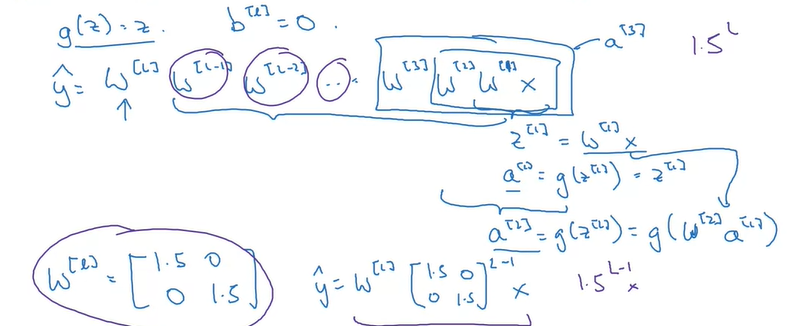 g(z) = z. b^[l] = 0.
ŷ = W^[L] W^[L-1] W^[L-2] ... W^[3] W^[2] W^[1] x a^[3] 1.5^L
z^[1] = W^[1] x
a^[1] = g(z^[1]) = z^[1]
a^[2] = g(z^[2]) = g(W^[2] a^[1])
W^[l] = [1.5 0
0 1.5]
ŷ = W^[L] [1.5 0
0 1.5]^L-1 x 1.5^L-1 x